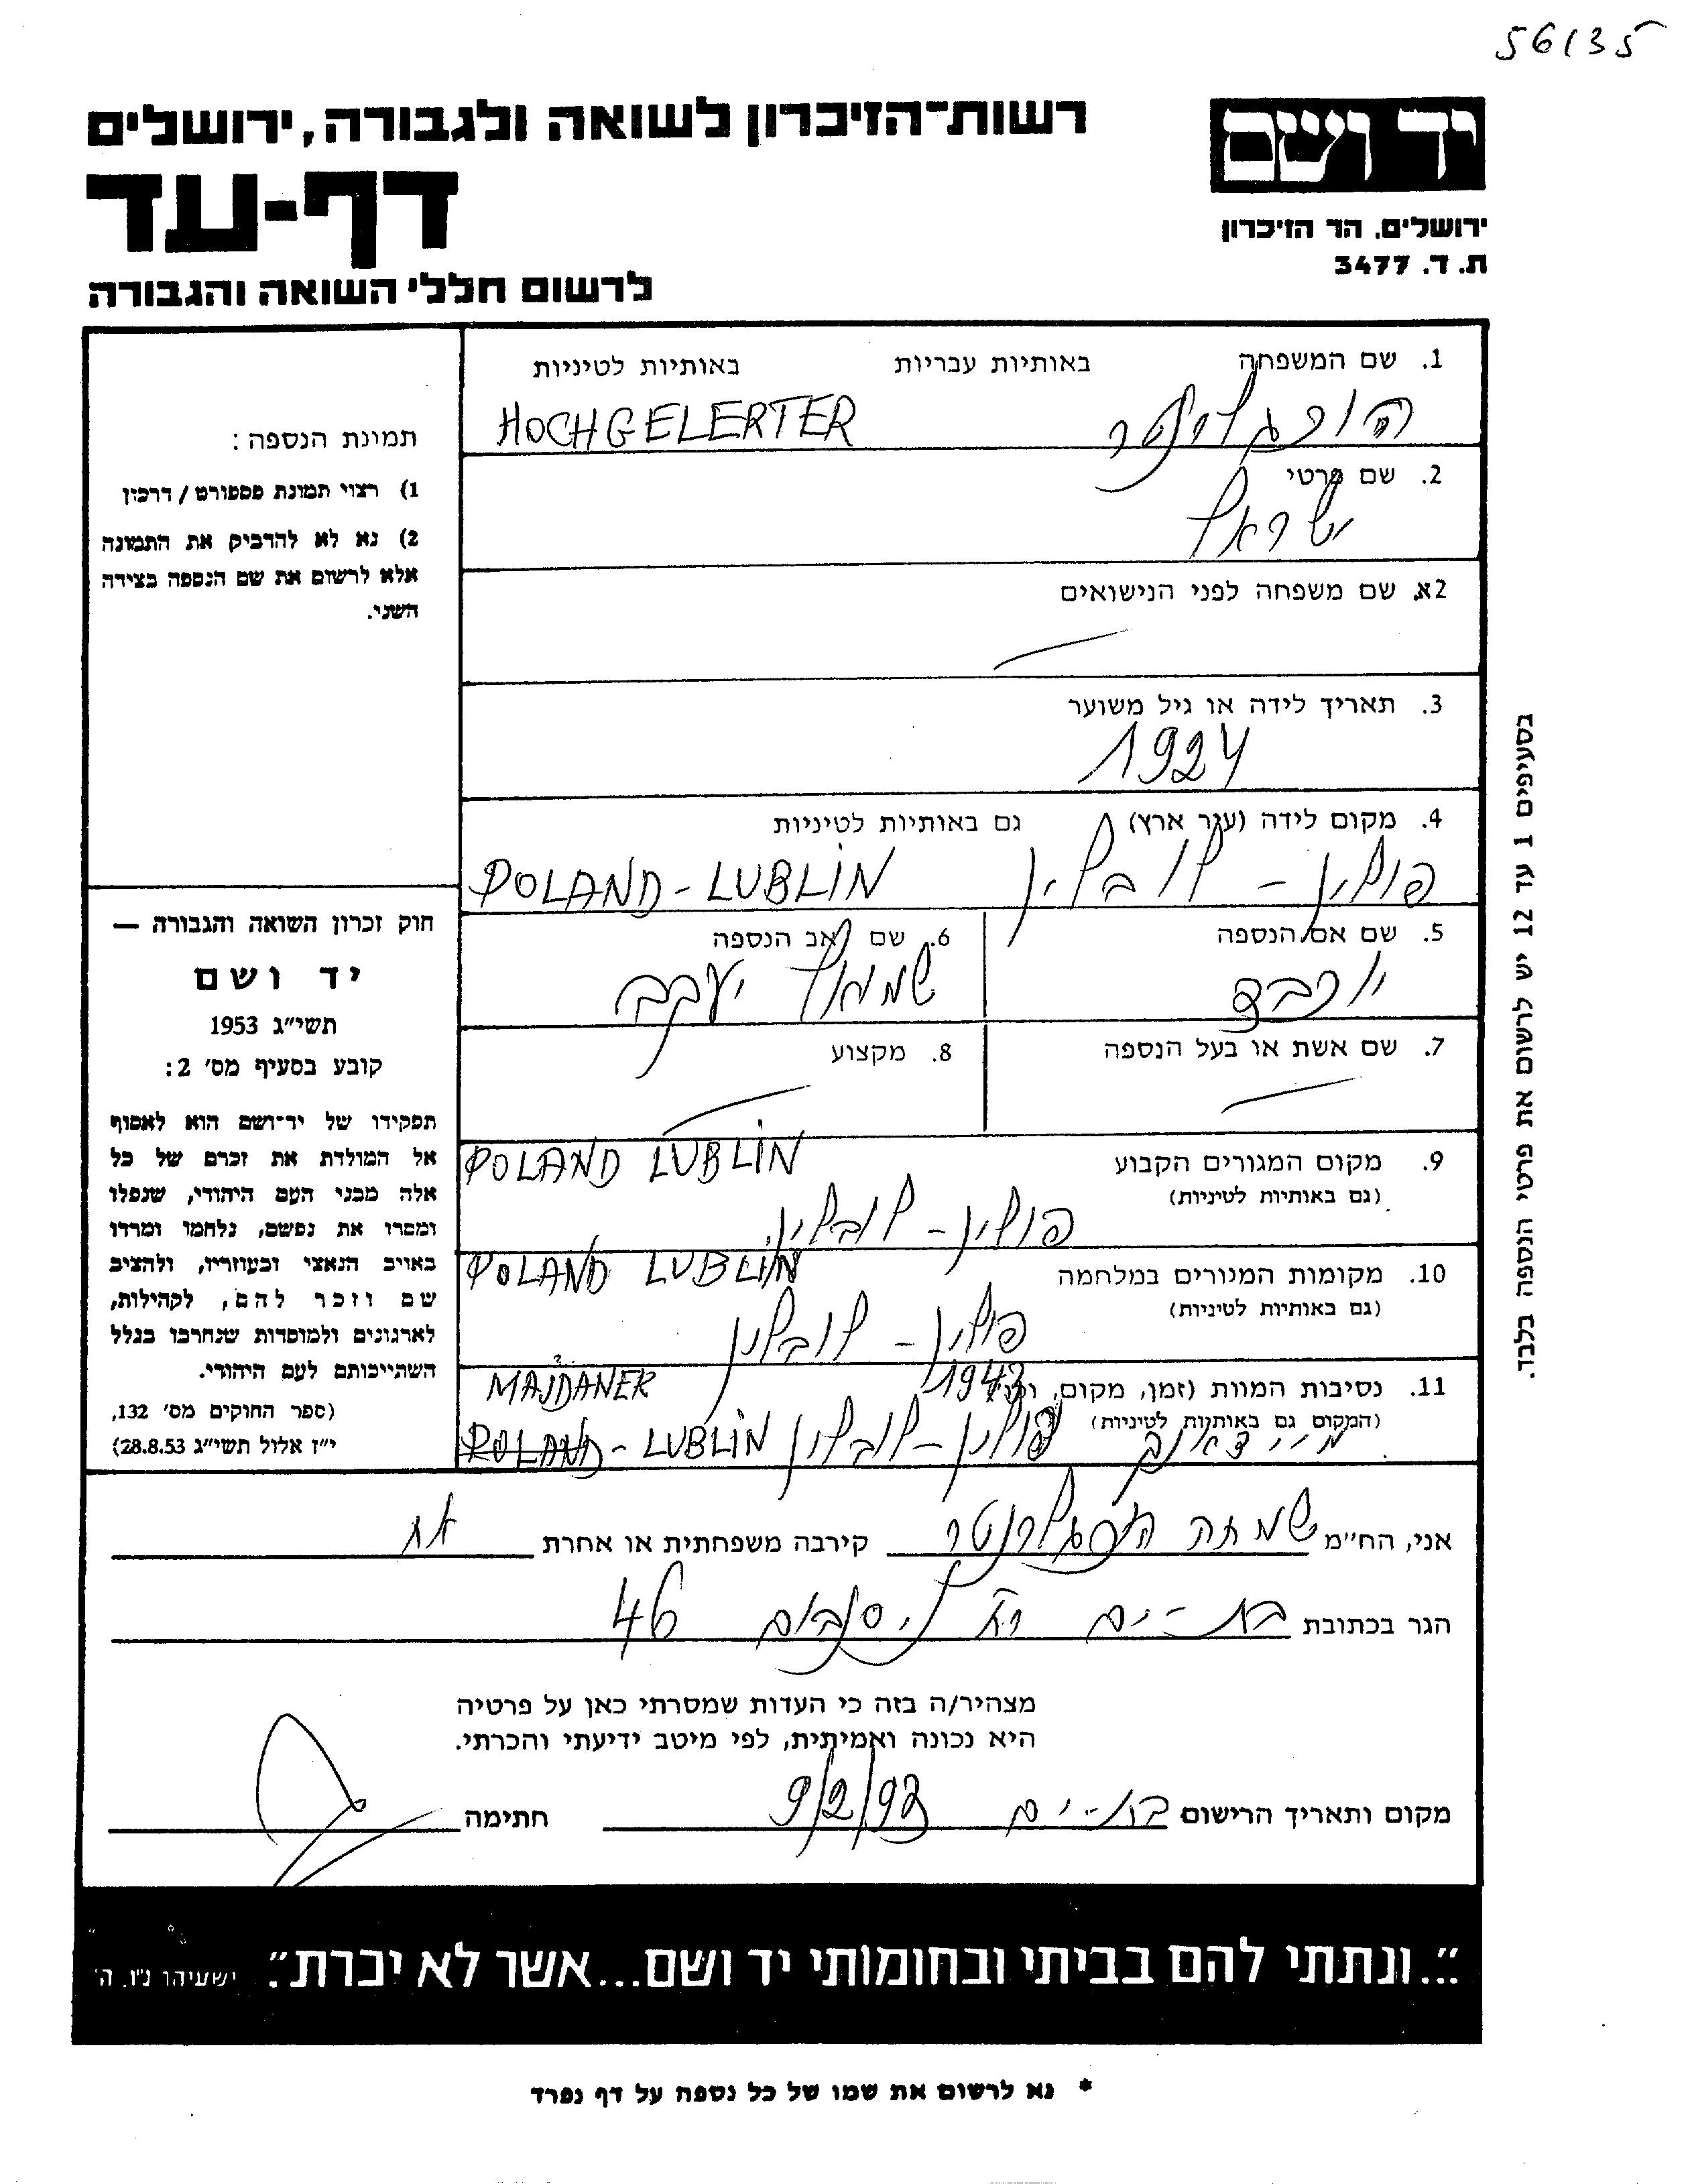 56135
יד ושם
ירושלים, הר הזיכרון
ת. ד. 3477
רשות-הזיכרון לשואה ולגבורה, ירושלים
דף-עד
לרשום חללי השואה והגבורה
1. שם המשפחה באותיות עבריות באותיות לטיניות
HOCHGELERTER
2. שם פרטי
ישראל
2א. שם משפחה לפני הנישואים
3. תאריך לידה או גיל משוער
1924
4. מקום לידה (עיר, ארץ) גם באותיות לטיניות
פולין - לובלין POLAND - LUBLIN
5. שם אם הנספה
יוכבד
6. שם אב הנספה
שמואל יעקב
7. שם אשת או בעל הנספה
8. מקצוע
9. מקום המגורים הקבוע
(גם באותיות לטיניות)
POLAND LUBLIN
פולין - לובלין
10. מקומות המגורים במלחמה
(גם באותיות לטיניות)
POLAND LUBLIN
פולין - לובלין
11. נסיבות המוות (זמן, מקום, וכו')
(המקום גם באותיות לטיניות)
1943 MAJDANEK
פולין - לובלין POLAND - LUBLIN
תמונת הנספה:
1) רצוי תמונת פספורט / דרכון
2) נא לא להדביק את התמונה
אלא לרשום את שם הנספה בצידה
השני.
חוק זכרון השואה והגבורה —
יד ושם
תשי"ג 1953
קובע בסעיף מס' 2:
תפקידו של יד-ושם הוא לאסוף
אל המולדת את זכרם של כל
אלה מבני העם היהודי, שנפלו
ומסרו את נפשם, נלחמו ומרדו
באויב הנאצי ובעוזריו, ולהציב
שם וזכר להם, לקהילות,
לארגונים ולמוסדות שנחרבו בגלל
השתייכותם לעם היהודי.
(ספר החוקים מס' 132,
י"ז אלול תשי"ג 28.8.53)
בסעיפים 1 עד 12 יש לרשום את פרטי הנספה בלבד.
אני, הח"מ שמחה קירבה משפחתית או אחרת אח
הגר בכתובת בת-ים 46
מצהיר/ה בזה כי העדות שמסרתי כאן על פרטיה
היא נכונה ואמיתית, לפי מיטב ידיעתי והכרתי.
מקום ותאריך הרישום בת-ים 9/2/93 חתימה
"...ונתתי להם בביתי ובחומותי יד ושם...אשר לא יכרת". ישעיהו נ"ו, ה'
* נא לרשום את שמו של כל נספה על דף נפרד